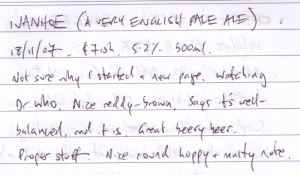 IVANHOE (A VERY ENGLISH PALE ALE).
18/11/07. £?.oh 5.2% 500ml.
Not sure why I started a new page. Watching
Dr Who. Nice reddy-brown. Says it's well-
balanced, and it is. Great beery beer.
Proper stuff. Nice round hoppy + malty note.